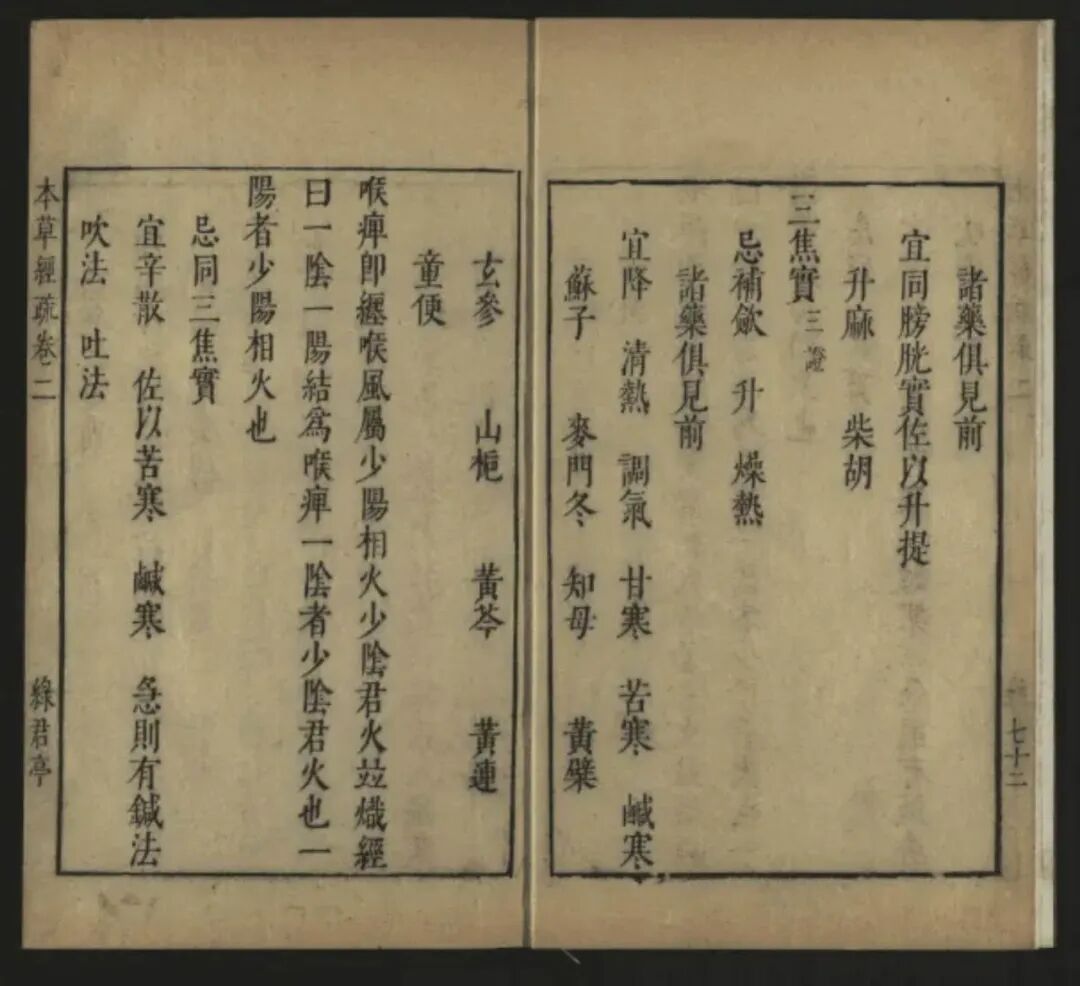 諸藥俱見前
宜同膀胱實佐以升提
升麻 柴胡
三焦實三證
忌補斂 升 燥熱
諸藥俱見前
宜降 清熱 調氣 甘寒 苦寒 鹹寒
蘇子 麥門冬 知母 黃檗
七十二
玄參 山梔 黃芩 黃連
童便
喉痺卽纏喉風屬少陽相火少陰君火竝熾經
曰一陰一陽結爲喉痺一陰者少陰君火也一
陽者少陽相火也
忌同三焦實
宜辛散 佐以苦寒 鹹寒 急則有鍼法
吹法 吐法
本草經疏卷二
綠君亭